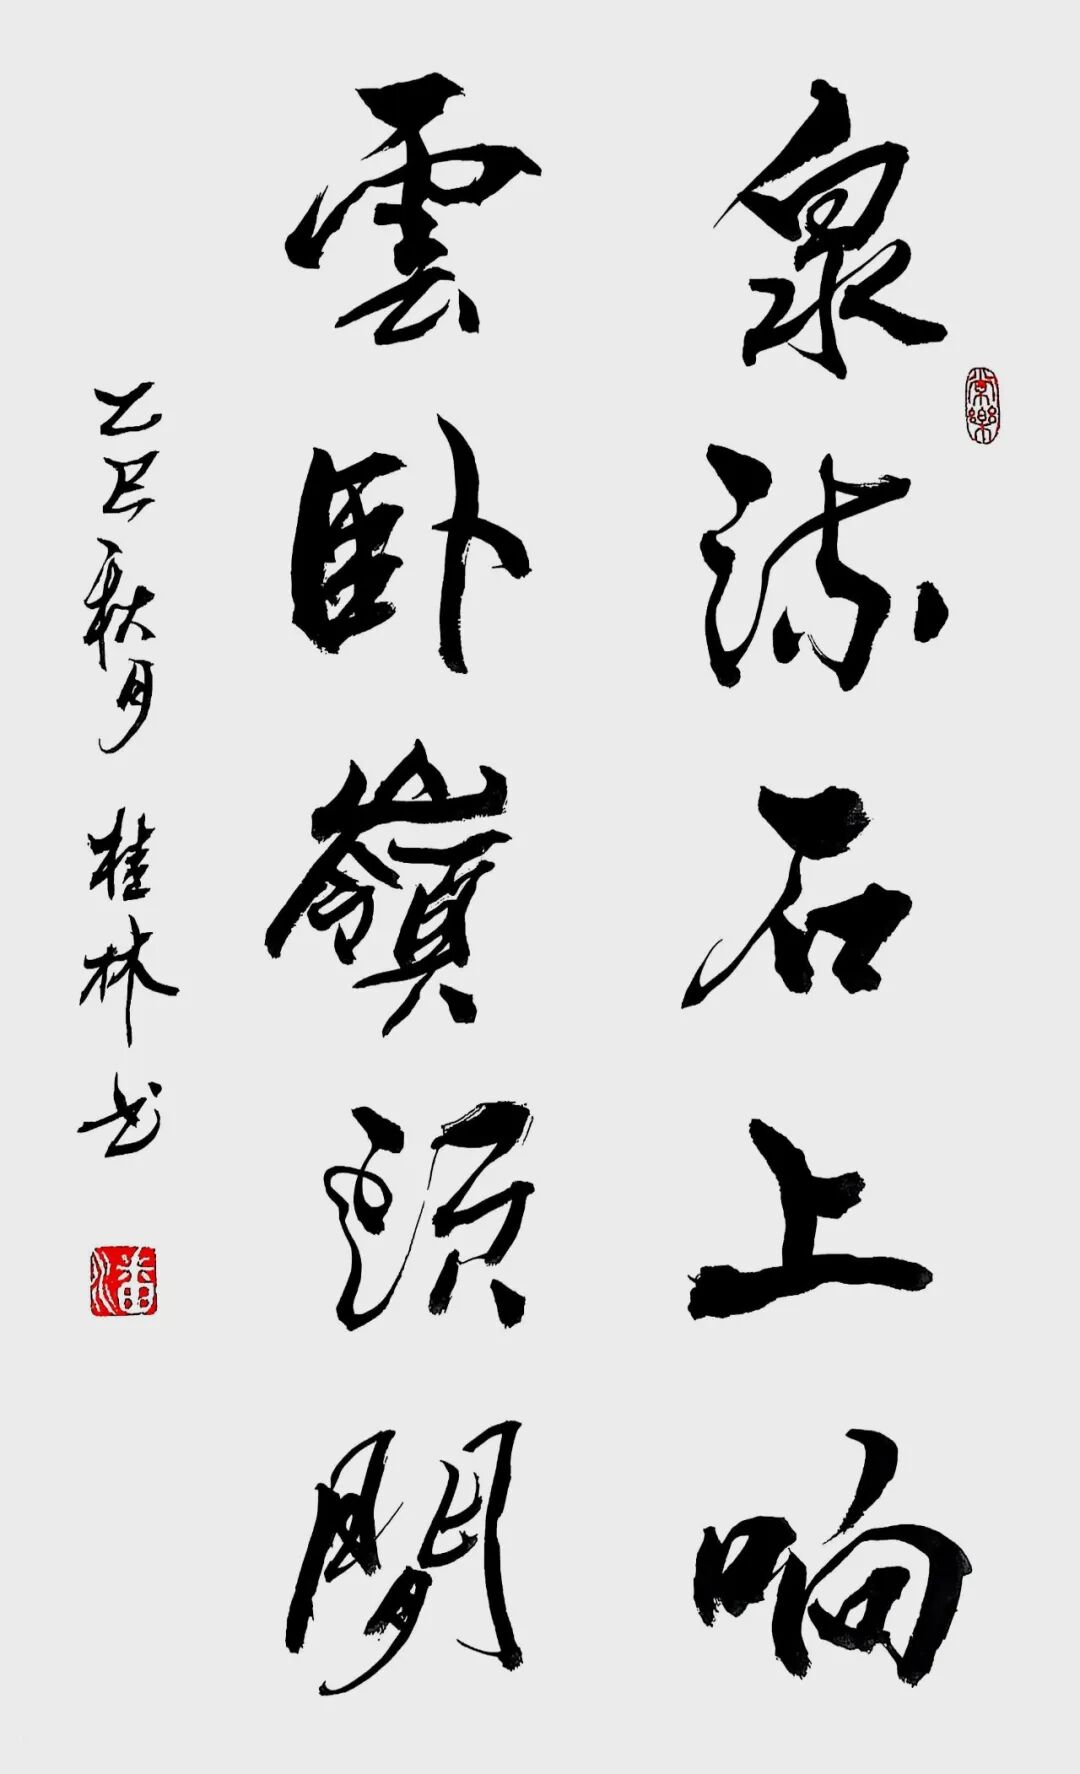 泉流石上响
雲卧嶺頭閒
乙巳秋月 桂林书
常樂
潘